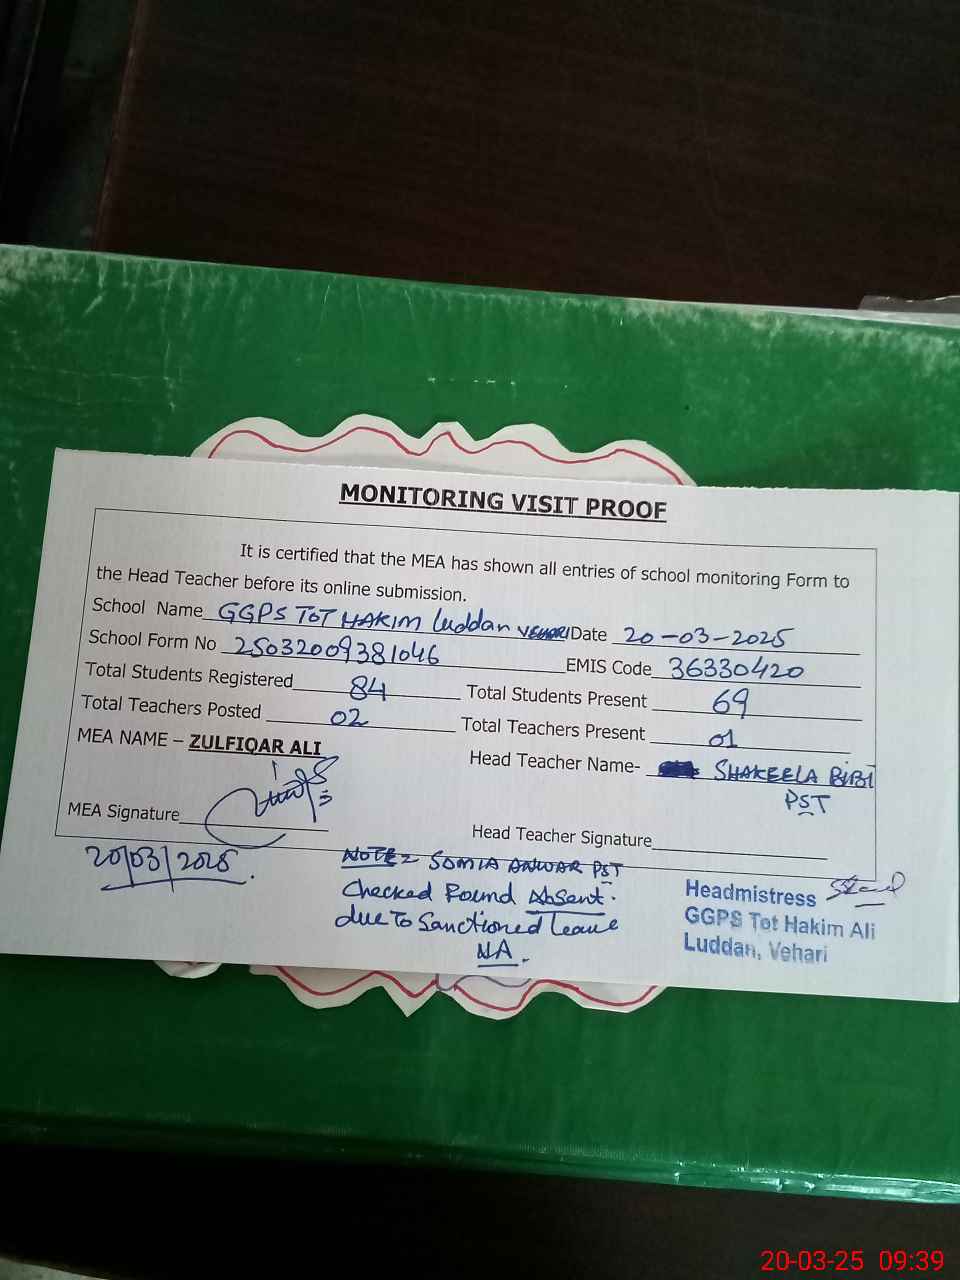 MONITORING VISIT PROOF
It is certified that the MEA has shown all entries of school monitoring Form to
the Head Teacher before its online submission.
School Name GGPS TOT HAKIM Luddan VEHARI Date 20-03-2025
School Form No 25032009381046 EMIS Code 36330420
Total Students Registered 84 Total Students Present 69
Total Teachers Posted 02 Total Teachers Present 01
MEA NAME – ZULFIQAR ALI Head Teacher Name- SHAKEELA BIBI
PST
MEA Signature Head Teacher Signature
20/03/2025.
NOTE= SOMIA ANWAR PST
Checked Found Absent.
due To Sanctioned Leave
NA.
Headmistress
GGPS Tot Hakim Ali
Luddan, Vehari
20-03-25 09:39